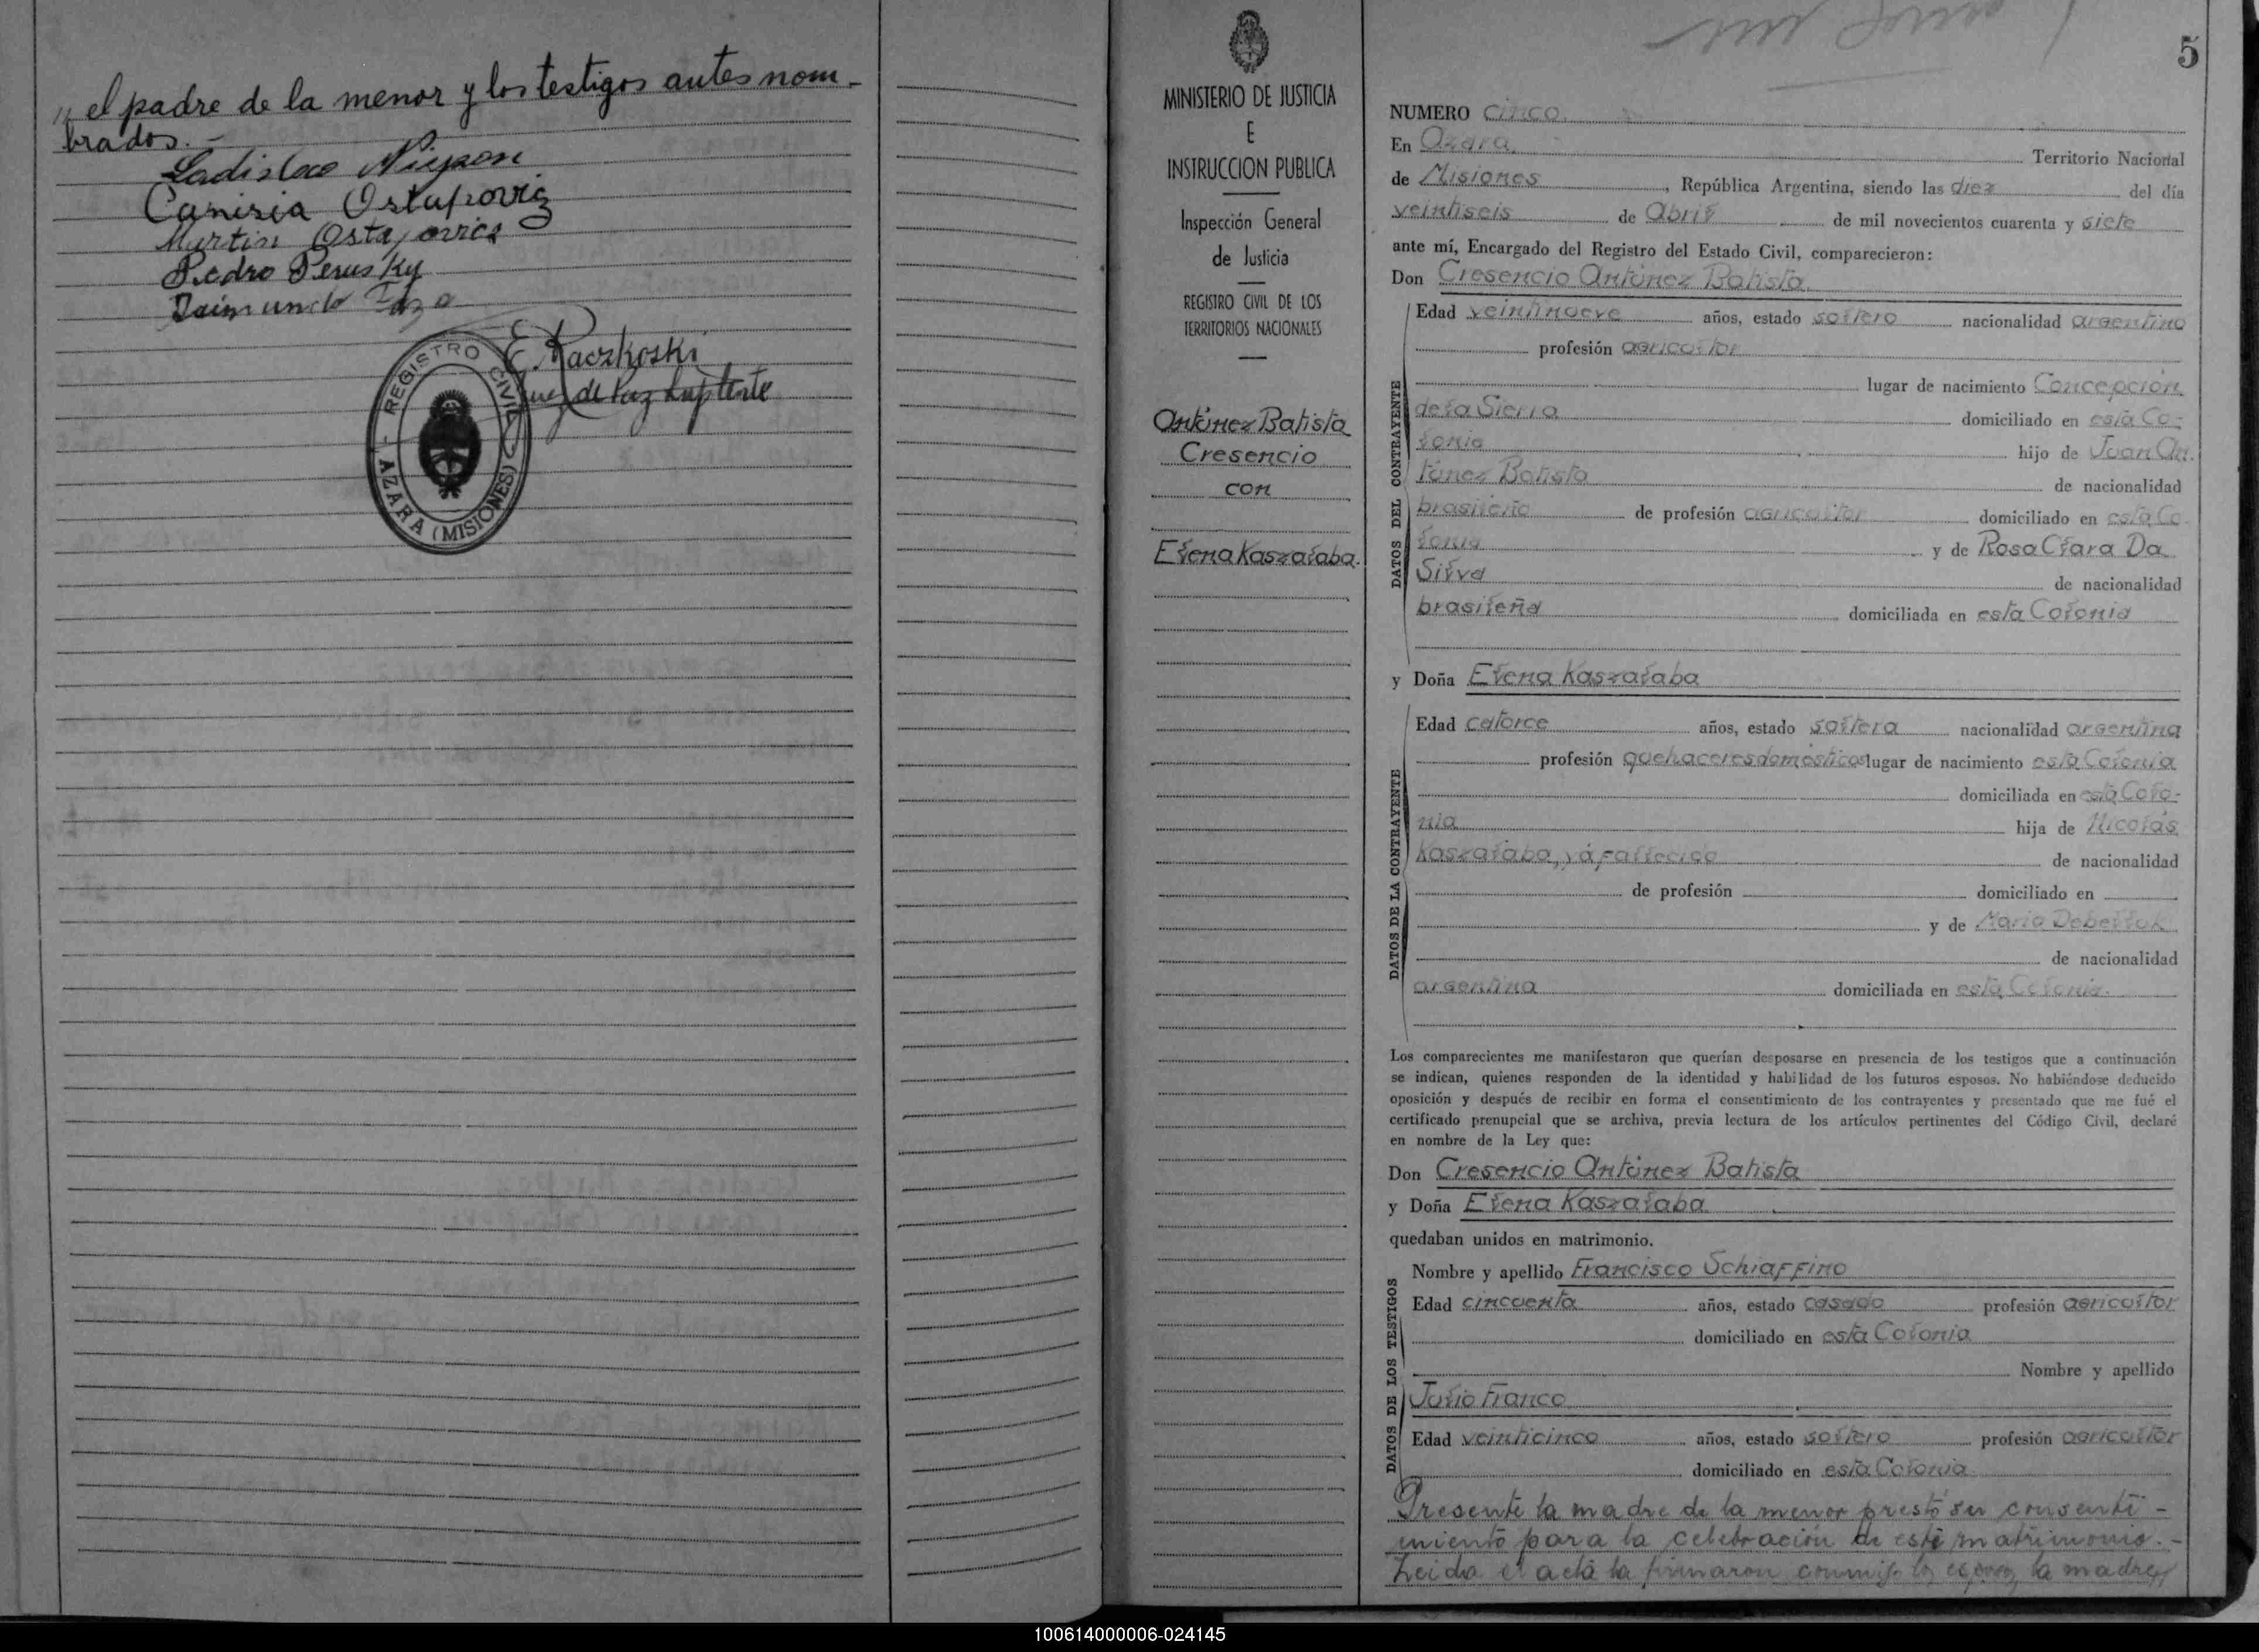 „ el padre de la menor y los testigos antes nom-
brados. -
Ladislao
Ostapovicz
Martin Ostapovicz
Pedro Perusky
E. Raczkoski
Juez de Paz Suplente
REGISTRO CIVIL
AZARA (MISIONES)
MINISTERIO DE JUSTICIA
E
INSTRUCCION PUBLICA
Inspección General
de Justicia
REGISTRO CIVIL DE LOS
TERRITORIOS NACIONALES
Antúnez Batista
Cresencio
con
Elena Kaszalaba.
5
NUMERO cinco.
En Azara. Territorio Nacional
de Misiones, República Argentina, siendo las diez del día
veintiseis de Abril de mil novecientos cuarenta y siete
ante mí, Encargado del Registro del Estado Civil, comparecieron:
Don Cresencio Antúnez Batista.
DATOS DEL CONTRAYENTE
Edad veintinueve años, estado soltero nacionalidad argentino
profesión agricultor
lugar de nacimiento Concepción
de la Sierra domiciliado en esta Co-
lonia hijo de Juan An-
túnez Batista de nacionalidad
brasileña de profesión agricultor domiciliado en esta Co-
lonia y de Rosa Clara Da
Silva de nacionalidad
brasileña domiciliada en esta Colonia
y Doña Elena Kaszalaba
DATOS DE LA CONTRAYENTE
Edad catorce años, estado soltera nacionalidad argentina
profesión quehaceres domésticos lugar de nacimiento esta Colonia
domiciliada en esta Colo-
nia hija de Nicolás
Kaszalaba, yá fallecido de nacionalidad
de profesión domiciliado en
y de María Debelluk
de nacionalidad
argentina domiciliada en esta Colonia.
Los comparecientes me manifestaron que querían desposarse en presencia de los testigos que a continuación
se indican, quienes responden de la identidad y habilidad de los futuros esposos. No habiéndose deducido
oposición y después de recibir en forma el consentimiento de los contrayentes y presentado que me fué el
certificado prenupcial que se archiva, previa lectura de los artículos pertinentes del Código Civil, declaré
en nombre de la Ley que:
Don Cresencio Antúnez Batista
y Doña Elena Kaszalaba
quedaban unidos en matrimonio.
DATOS DE LOS TESTIGOS
Nombre y apellido Francisco Schiaffino
Edad cincuenta años, estado casado profesión agricultor
domiciliado en esta Colonia
Nombre y apellido
Julio Franco
Edad veinticinco años, estado soltero profesión agricultor
domiciliado en esta Colonia
Presente la madre de la menor prestó su consenti-
miento para la celebración de este matrimonio.-
Leida el acta la firmaron conmigo los esposos, la madre
100614000006-024145